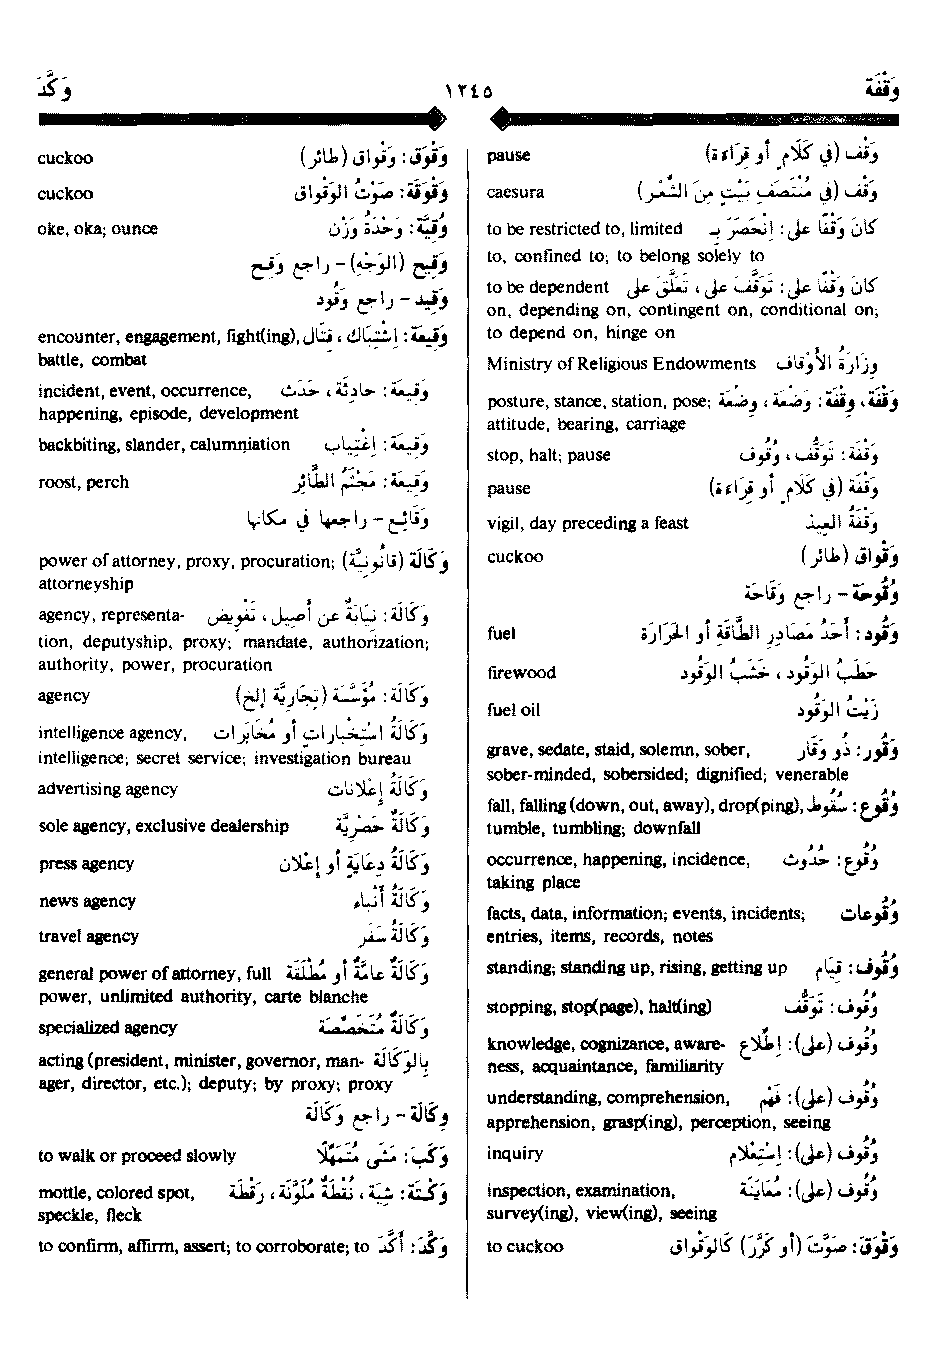 وَقْفَة
١٢٤٥
وَكَّدَ
pause وَقْف (في كَلَامٍ أو قِرَاءَة)
caesura وَقْف (في مُنْتَصَفِ بَيْتٍ مِنَ الشِّعْر)
to be restricted to, limited كَانَ وَقْفًا على: إنْحَصَرَ بِـ
to, confined to; to belong solely to
to be dependent كَانَ وَقْفًا على: تَوَقَّفَ على، تَعَلَّقَ على
on, depending on, contingent on, conditional on;
to depend on, hinge on
Ministry of Religious Endowments وِزَارَةُ الأَوْقَاف
posture, stance, station, pose; وَقْفَة، وِقْفَة: وَضْعَة، وِضْعَة
attitude, bearing, carriage
stop, halt; pause وَقْفَة: تَوَقُّف، وُقُوف
pause وَقْفَة (في كَلَامٍ أو قِرَاءَة)
vigil, day preceding a feast وَقْفَةُ العِيد
cuckoo وَقْوَاق (طائر)
وُقُوحَة - راجع وَقَاحَة
fuel وَقُود: أَحَدُ مَصَادِرِ الطَّاقَةِ أو الحَرَارَة
firewood حَطَبُ الوَقُود، خَشَبُ الوَقُود
fuel oil زَيْتُ الوَقُود
grave, sedate, staid, solemn, sober, وَقُور: ذُو وَقَار
sober-minded, sobersided; dignified; venerable
fall, falling (down, out, away), drop(ping), وُقُوع: سُقُوط
tumble, tumbling; downfall
occurrence, happening, incidence, وُقُوع: حُدُوث
taking place
facts, data, information; events, incidents; وُقُوعَات
entries, items, records, notes
standing; standing up, rising, getting up وُقُوف: قِيَام
stopping, stop(page), halt(ing) وُقُوف: تَوَقُّف
knowledge, cognizance, aware- وُقُوف (على): إطِّلَاع
ness, acquaintance, familiarity
understanding, comprehension, وُقُوف (على): فَهْم
apprehension, grasp(ing), perception, seeing
inquiry وُقُوف (على): إسْتِعْلَام
inspection, examination, وُقُوف (على): مُعَايَنَة
survey(ing), view(ing), seeing
to cuckoo وَقْوَقَ: صَوَّتَ (أو كَرَّرَ) كَالوَقْوَاق
cuckoo وَقْوَق: وَقْوَاق (طائر)
cuckoo وَقْوَقَة: صَوْتُ الوَقْوَاق
oke, oka; ounce وُقِيَّة: وَحْدَةُ وَزْن
وَقِيح (الوَجْهِ) - راجع وَقِح
وَقِيد - راجع وَقُود
encounter, engagement, fight(ing), وَقِيعَة: إشْتِبَاك، قِتَال
battle, combat
incident, event, occurrence, وَقِيعَة: حادِثَة، حَدَث
happening, episode, development
backbiting, slander, calumniation وَقِيعَة: إغْتِيَاب
roost, perch وَقِيعَة: مَجْثَمُ الطَّائِر
وَقَائِع - راجعها في مكانها
power of attorney, proxy, procuration; وَكَالَة (قانُونِيَّة)
attorneyship
agency, representa- وَكَالَة: نِيَابَةٌ عن أَصِيل، تَفْوِيض
tion, deputyship, proxy; mandate, authorization;
authority, power, procuration
agency وَكَالَة: مُؤَسَّسَة (تِجَارِيَّة إلخ)
intelligence agency, وَكَالَةُ اسْتِخْبَارات أو مُخَابَرات
intelligence; secret service; investigation bureau
advertising agency وَكَالَةُ إعْلَانَات
sole agency, exclusive dealership وَكَالَةٌ حَصْرِيَّة
press agency وَكَالَةُ دِعَايَةٍ أو إعْلَان
news agency وَكَالَةُ أَنْبَاء
travel agency وَكَالَةُ سَفَر
general power of attorney, full وَكَالَةٌ عامَّةٌ أو مُطْلَقَة
power, unlimited authority, carte blanche
specialized agency وَكَالَةٌ مُتَخَصِّصَة
acting (president, minister, governor, man- بِالوَكَالَة
ager, director, etc.); deputy; by proxy; proxy
وِكَالَة - راجع وَكَالَة
to walk or proceed slowly وَكَبَ: مَشَى مُتَمَهِّلًا
mottle, colored spot, وَكْتَة: شِيَة، نُقْطَةٌ مُلَوَّنَة، رُقْطَة
speckle, fleck
to confirm, affirm, assert; to corroborate; to وَكَّدَ: أَكَّدَ